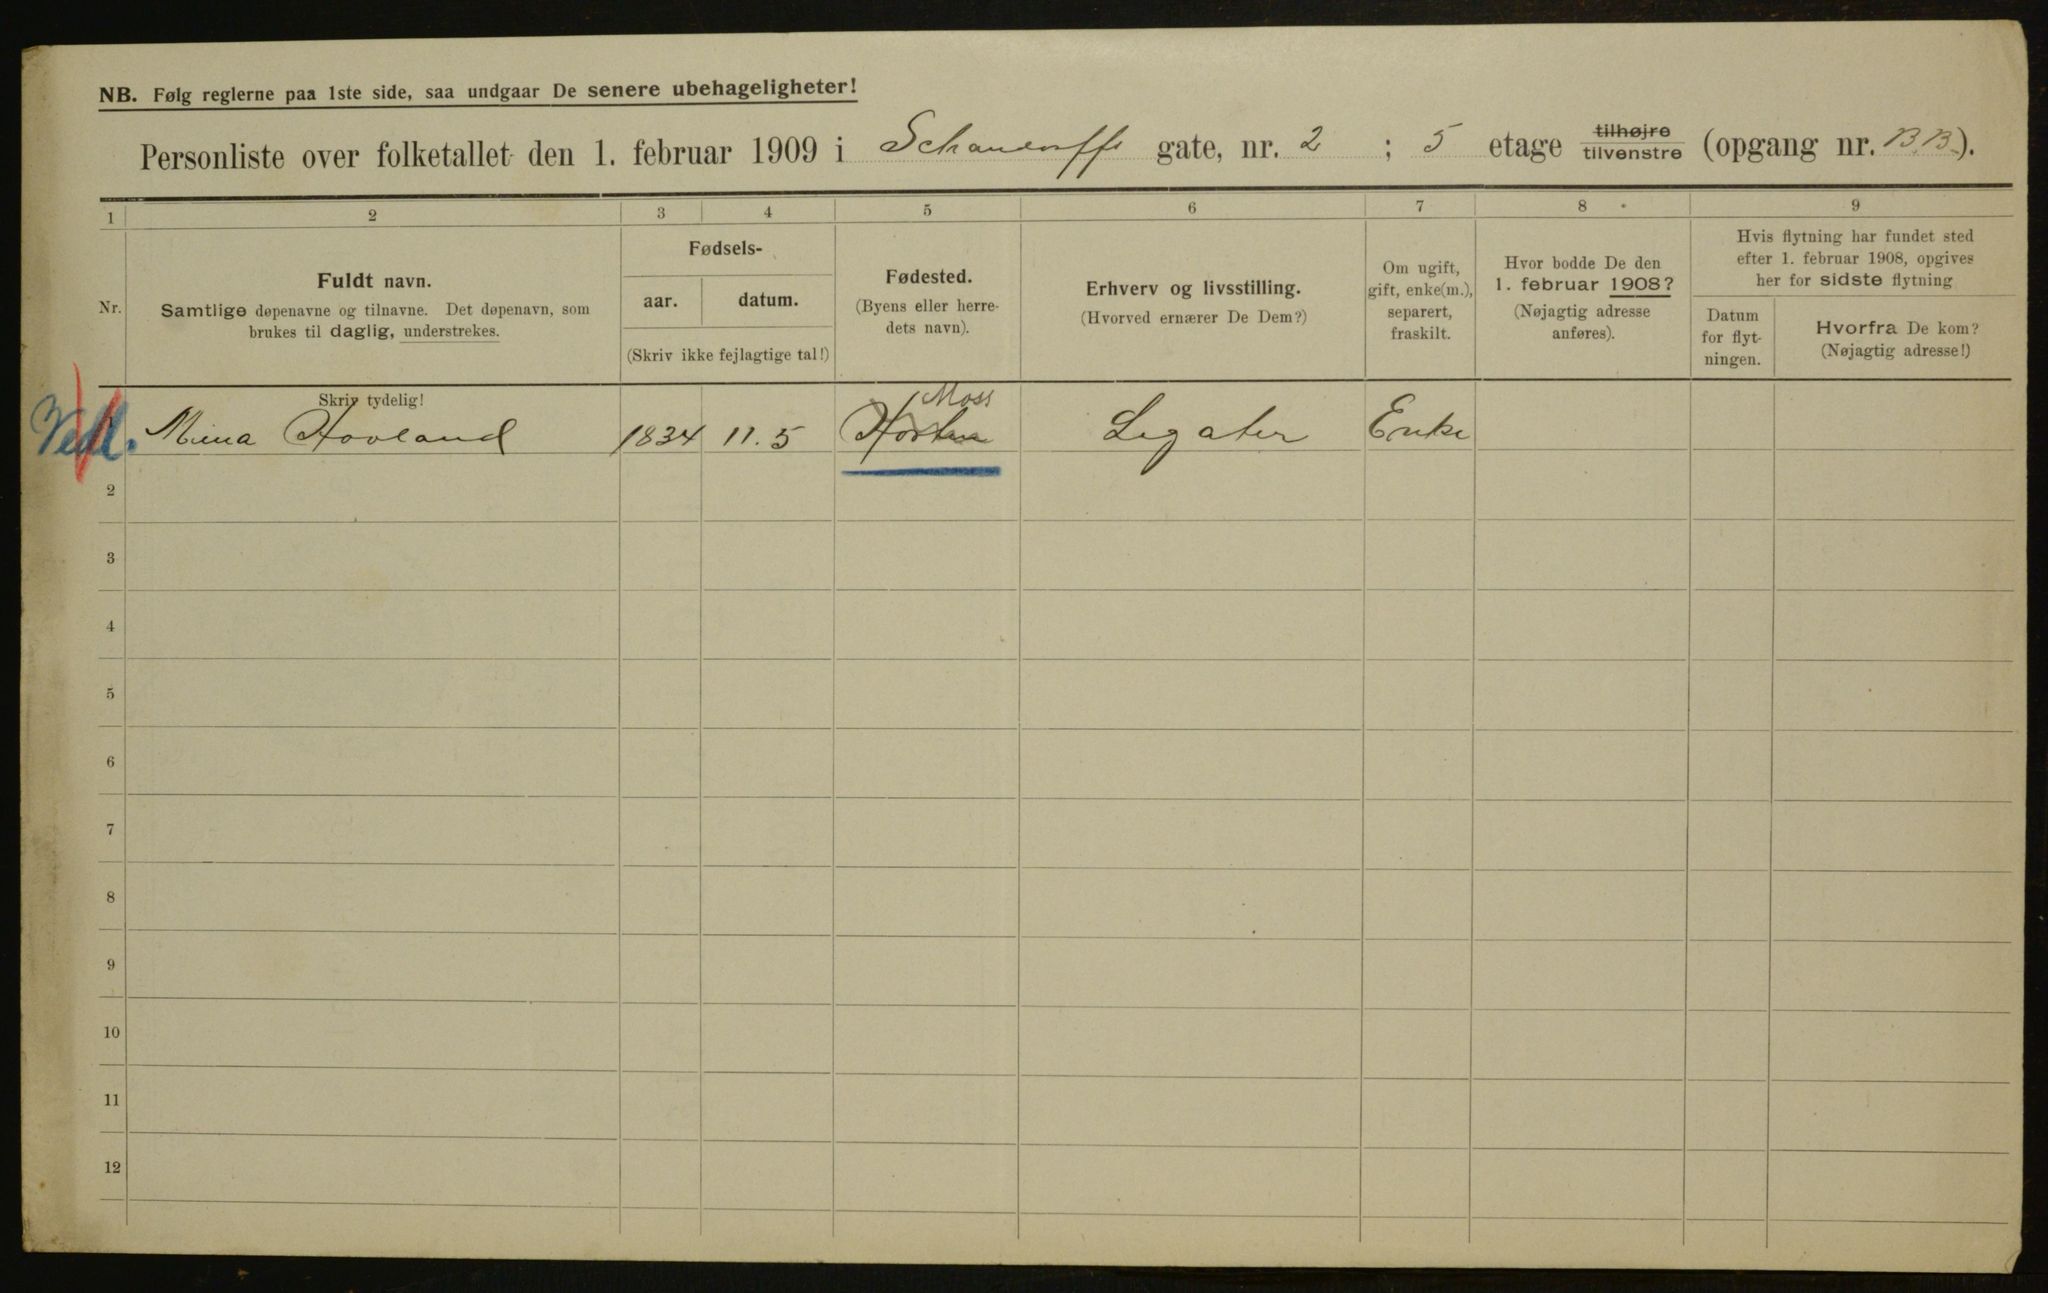 NB. Følg reglerne paa 1ste side, saa undgaar De senere ubehageligheter!
Personliste over folketallet den 1. februar 1909 i Schandorffs gate, nr. 2 ; 5 etage tilhøjre tilvenstre (opgang nr. B.B.).
1 2 3 4 5 6 7 8 9
Nr.
Fuldt navn.
Samtlige døpenavne og tilnavne. Det døpenavn, som
brukes til daglig, understrekes.
Fødsels-
aar. datum.
(Skriv ikke fejlagtige tal!)
Fødested.
(Byens eller herre-
dets navn).
Erhverv og livsstilling.
(Hvorved ernærer De Dem?)
Om ugift,
gift, enke(m.),
separert,
fraskilt.
Hvor bodde De den
1. februar 1908?
(Nøjagtig adresse
anføres).
Hvis flytning har fundet sted
efter 1. februar 1908, opgives
her for sidste flytning
Datum
for flyt-
ningen.
Hvorfra De kom?
(Nøjagtig adresse!)
Skriv tydelig!
Moss
Vedl. Mina Hovland 1834 11.5 Horten Legater Enke
2
3
4
5
6
7
8
9
10
11
12